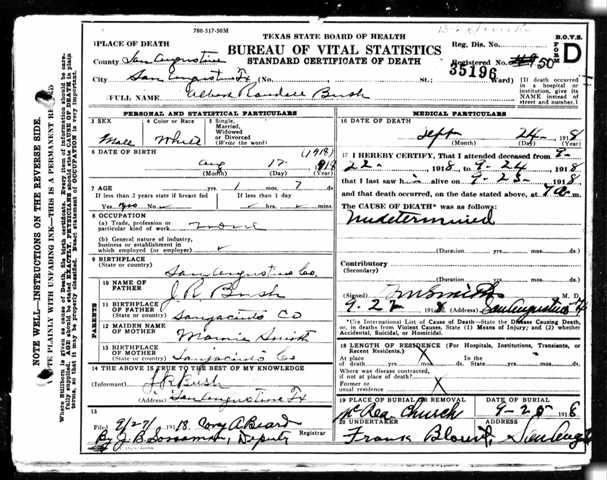 780-517-50M
TEXAS STATE BOARD OF HEALTH
BUREAU OF VITAL STATISTICS
STANDARD CERTIFICATE OF DEATH
B.O.V.S.
FORM D
Reg. Dis. No.
Registered No. 50
35196
PLACE OF DEATH
County San Augustine
City San Augustine Tx (No. St.; Ward)
[If death occurred in a hospital or institution, give its NAME instead of street and number.]
FULL NAME Randall Bush
PERSONAL AND STATISTICAL PARTICULARS
3 SEX Male
4 Color or Race White
5 Single, Married, Widowed or Divorced (Write the word)
6 DATE OF BIRTH (1918)
Aug 17 1918
(Month) (Day) (Year)
7 AGE yrs. 1 mos. 7 ds.
If less than 2 years state if breast fed
If less than 1 day
Yes No hrs. mins.
8 OCCUPATION
(a) Trade, profession or particular kind of work none
(b) General nature of industry, business or establishment in which employed (or employer)
9 BIRTHPLACE
(State or country) San Augustine Co.
PARENTS
10 NAME OF FATHER J. R. Bush
11 BIRTHPLACE OF FATHER
(State or country) Sanjacinto Co
12 MAIDEN NAME OF MOTHER Mamie Smith
13 BIRTHPLACE OF MOTHER
(State or country) Sanjacinto Co
14 THE ABOVE IS TRUE TO THE BEST OF MY KNOWLEDGE
(Informant) J R Bush
(Address) San Augustine Tx
15
Filed 9/27 1918. Cory A Beard
By J. B. Sossaman, Deputy Registrar
MEDICAL PARTICULARS
16 DATE OF DEATH
Sept 24 1918
(Month) (Day) (Year)
17 I HEREBY CERTIFY, That I attended deceased from 9-
22- 1918 9-24 1918
that I last saw h alive on 9-23- 1918
and that death occurred, on the date stated above, at m.
The CAUSE OF DEATH* was as follows:
Undetermined
(Duration yrs. mos. ds.
Contributory
(Secondary)
(Duration yrs. mos. ds.
(Signed) Smith M. D.
9-22 1918 (Address) San Augustine Tx
*Use International List of Cause of Death—State the Disease Causing Death, or, in deaths from Violent Causes, State (1) Means of Injury; and (2) whether Accidental, Suicidal, or Homicidal.
18 LENGTH OF RESIDENCE (For Hospitals, Institutions, Transients, or Recent Residents.)
At place of death yrs. mos. ds. In the State yrs. mos. ds.
Where was disease contracted, if not at place of death?
Former or usual residence
19 PLACE OF BURIAL OR REMOVAL
McRea Church
DATE OF BURIAL
9-25 1918
20 UNDERTAKER
Frank Blount
ADDRESS
San Aug
NOTE WELL—INSTRUCTIONS ON THE REVERSE SIDE.
WRITE PLAINLY WITH UNFADING INK—THIS IS A PERMANENT RECORD